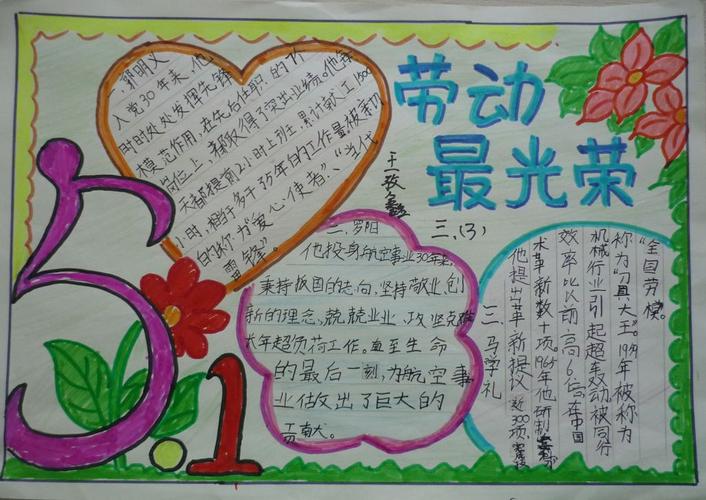 劳动
最光荣
5.1
郭明义
入党30年来，他
时时处处发挥先锋
模范作用，在先后任职的
岗位上，都取得了突出业绩。他每
天都提前2小时上班，累计献工1500
小时，相当于多干了5年的工作量，被亲切
的称为“爱心使者”、“当代
雷锋”。
三、(3)
二、罗阳
他投身航空事业30年来，
秉持报国的志向，坚持敬业、创
新的理念、兢兢业业、攻坚克难
长年超负荷工作。直至生命
的最后一刻，为航空事
业做出了巨大的
贡献。
三、马学礼
他提出革新提议近300项，
术革新数十项。1965年他研制
效率比以前高6倍。在中国
机械行业引起轰动，被同行
称为“刀具大王”。1959年被称为
“全国劳模”。